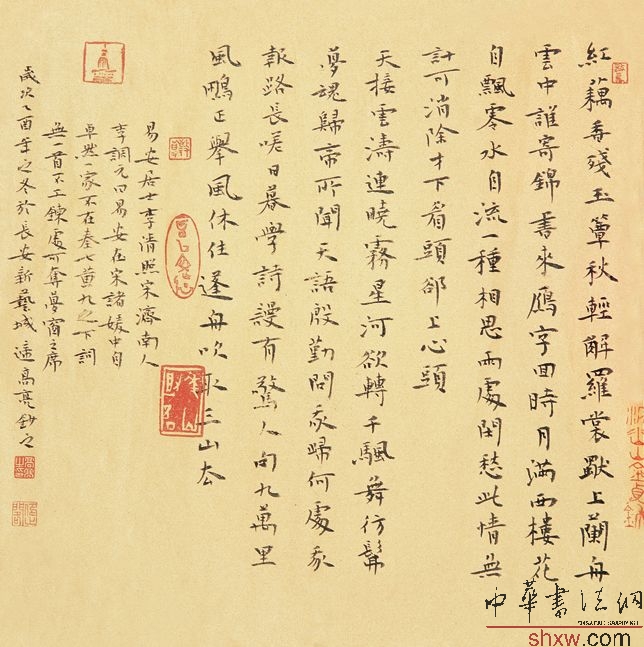 紅藕香殘玉簟秋輕解羅裳獨上蘭舟
雲中誰寄錦書來鴈字回時月滿西樓花
自飄零水自流一種相思兩處閒愁此情無
計可消除才下眉頭卻上心頭
天接雲濤連曉霧星河欲轉千颿舞彷髴
夢魂歸帝所聞天語殷勤問我歸何處我
報路長嗟日暮學詩謾有驚人句九萬里
風鵬正舉風休住蓬舟吹取三山去
易安居士李清照宋濟南人
李調元曰易安在宋諸媛中自
卓然一家不在秦七黃九之下詞
無一首不工鍊處可奪夢窗之席
歲次乙酉年之冬於長安新藝城高亮鈔之
中華書法網
shxw.com